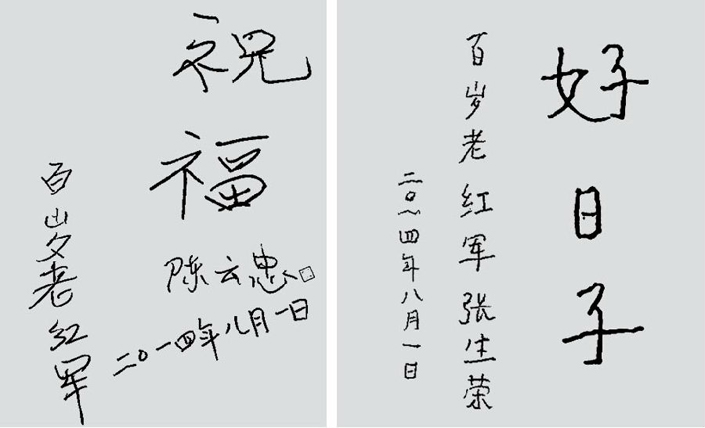 祝福
百岁老红军
陈云忠
二〇一四年八月一日
好日子
百岁老红军张生荣
二〇一四年八月一日